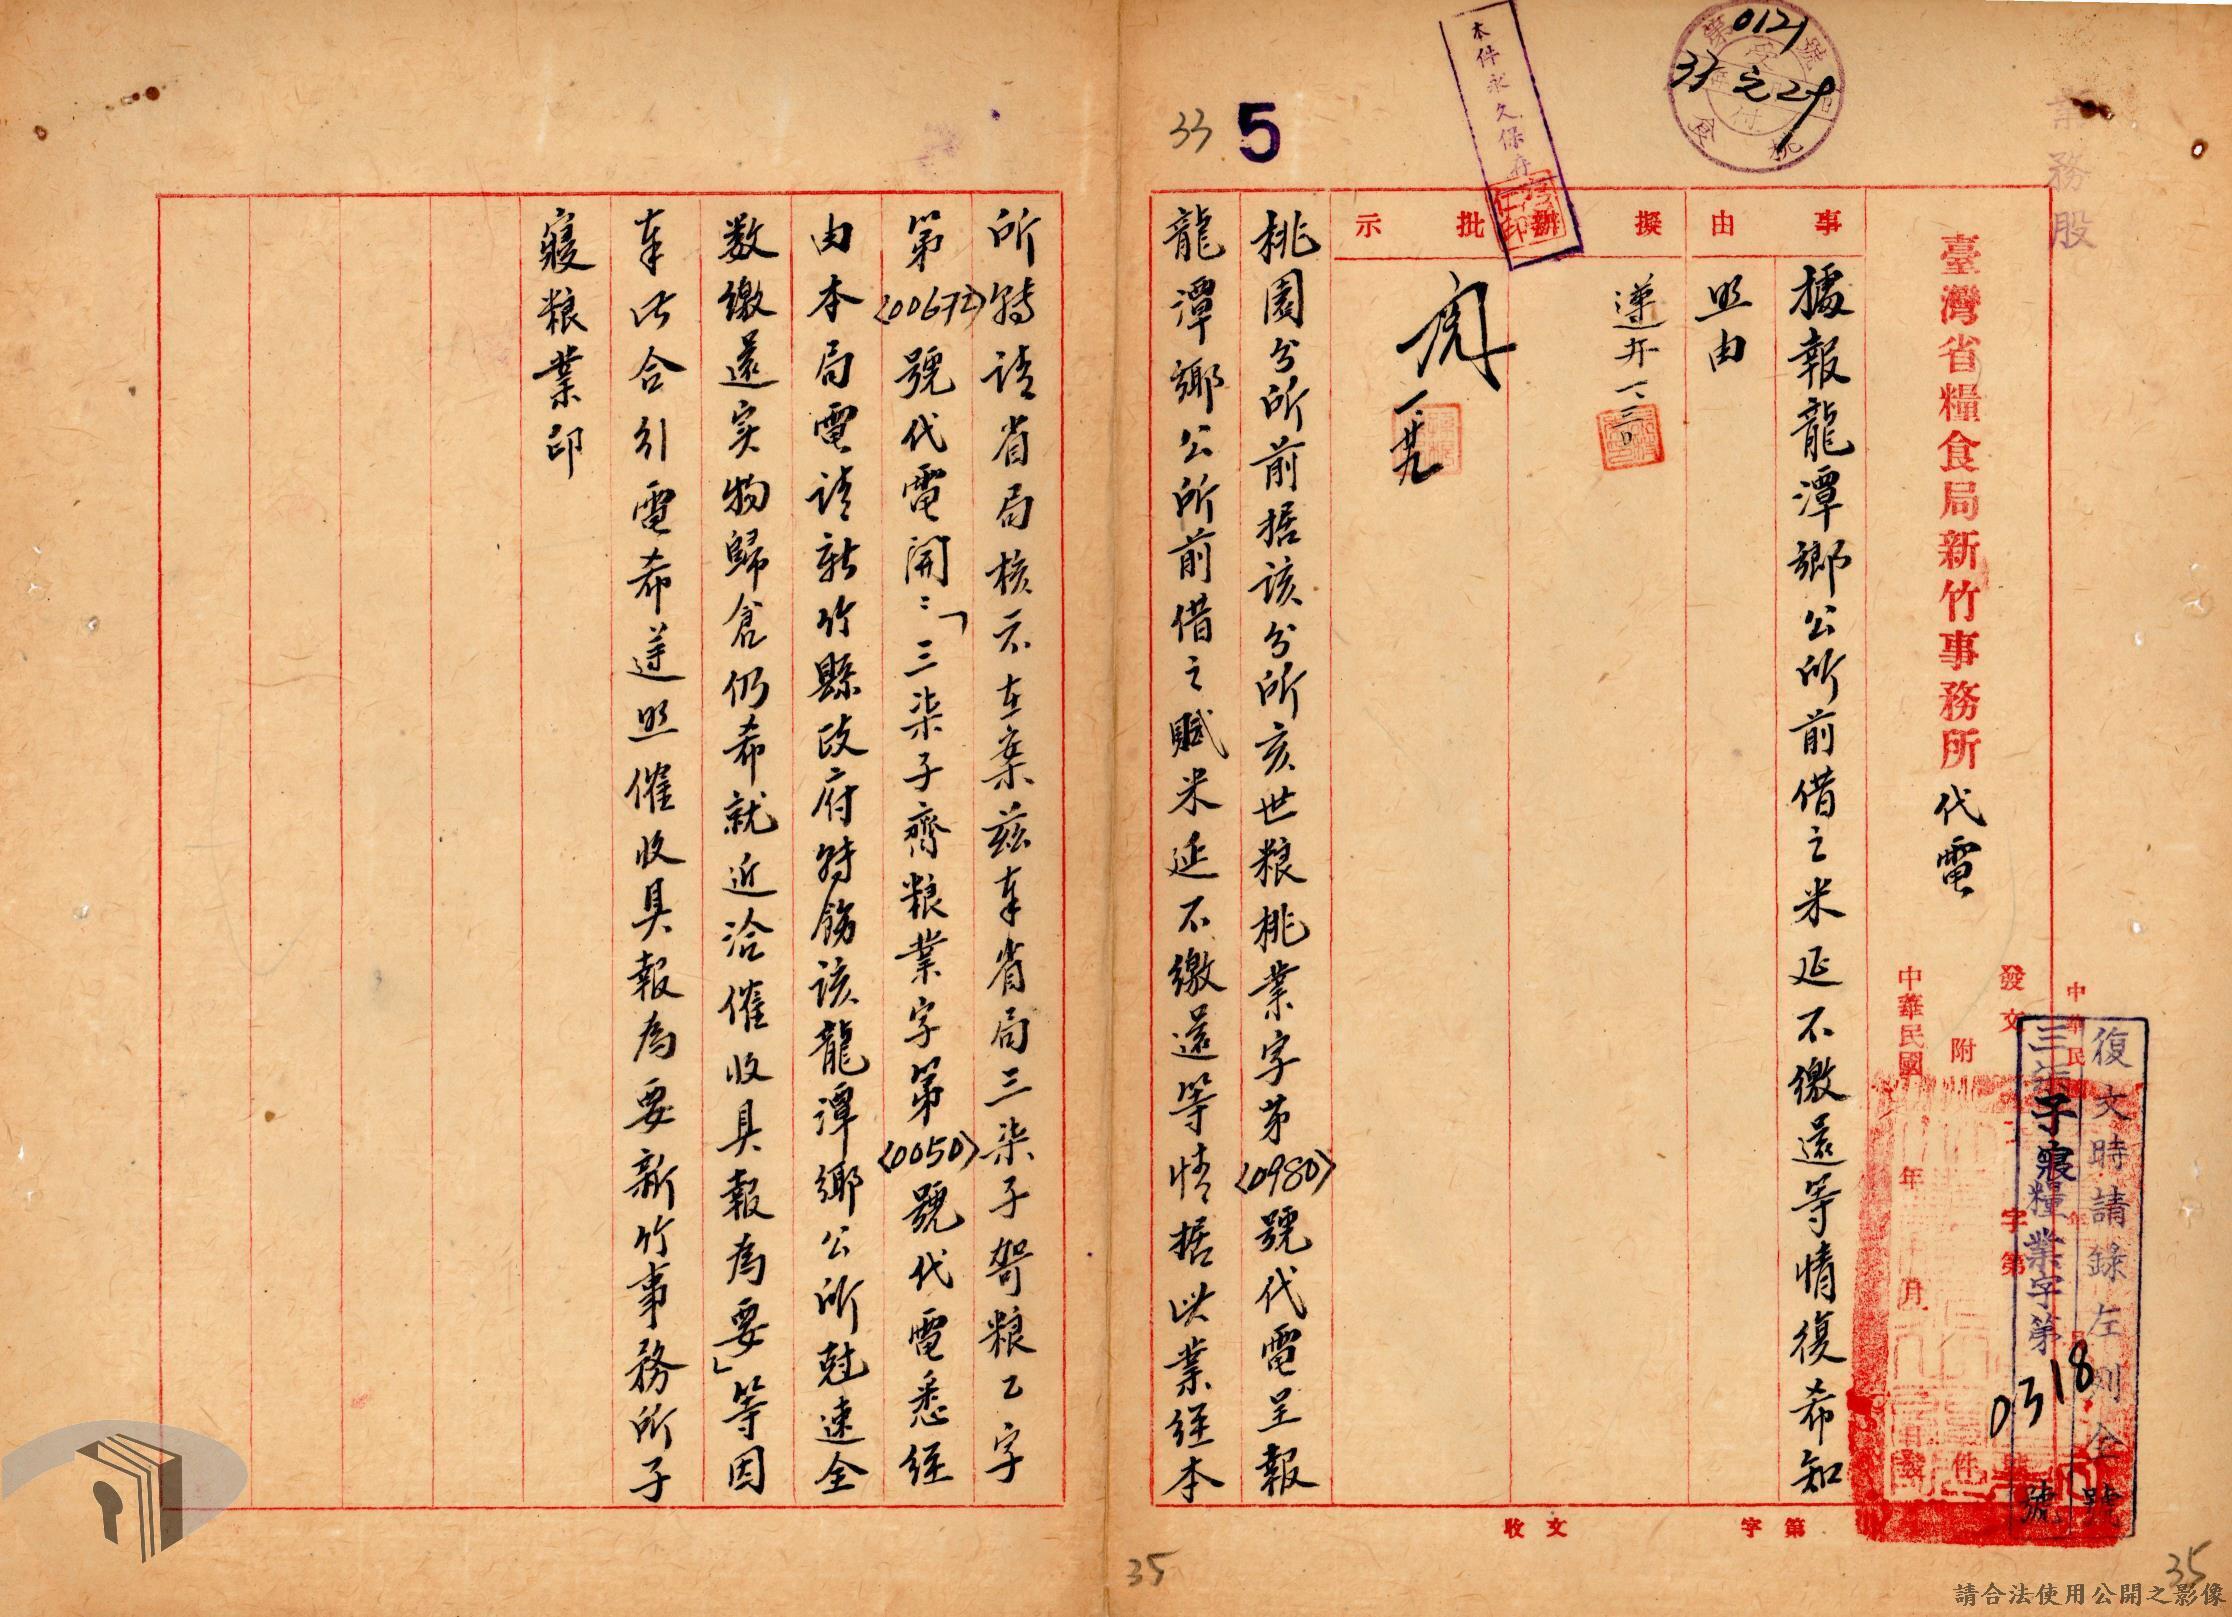 業務股
第0121號
受付
37元29
桃
食
本件永久保存
5
33
臺灣省糧食局新竹事務所代電
發文
字第
附
件
中華民國
年
月
日發
中華民
復文時請錄左列全號
三柒子寢糧業字第0318號
事由
擬辦
批示
據報龍潭鄉公所前借之米延不繳還等情復希知
照由
遵办一、三〇
一、廿九
桃園分所前据該分所亥世粮桃業字第(0980)號代電呈報
龍潭鄉公所前借之賦米延不繳還等情据此業經本
所轉請省局核示在案茲奉省局三柒子哿粮乙字
第(00672)號代電開：「三柒子齊粮業字第(0050)號代電悉經
由本局電請新竹縣政府轉飭該龍潭鄉公所尅速全
数繳還实物歸倉仍希就近洽催收具報為要」等因
奉此合引電希遵照催收具報為要新竹事務所子
寢粮業印
收文
字第
35
35
請合法使用公開之影像